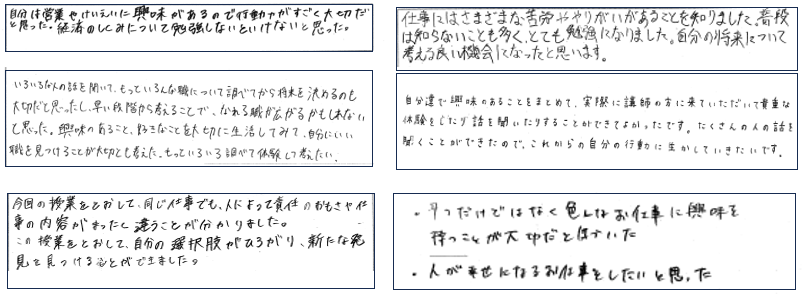 自分は営業やけいえいに興味があるので行動力がすごく大切だ
と思った。経済のしくみについて勉強しないといけないと思った。
仕事にはさまざまな苦労ややりがいがあることを知りました。普段
は知らないことも多く、とても勉強になりました。自分の将来について
考える良い機会になったと思います。
いろいろな人の話を聞いて、もっといろんな職について調べてから将来を決めるのも
大切だと思ったし、早い段階から考えることで、なれる職が広がるかもしれない
と思った。興味のあること、好きなことを大切に生活してみて、自分にいい
職を見つけることが大切とも考えた。もっといろいろ調べて体験して考えたい。
自分達で興味のあることをまとめて、実際に講師の方に来ていただいて貴重な
体験をしたり話を聞いたりすることができてよかったです。たくさんの人の話を
聞くことができたので、これからの自分の行動に生かしていきたいです。
今回の授業をとおして、同じ仕事でも、人によって責任のおもさや仕
事の内容がまったく違うことが分かりました。
この授業をとおして、自分の選択肢がひろがり、新たな発
見を見つけることができました。
・1つだけではなく色んなお仕事に興味を
持つことが大切だと気づいた
・人が幸せになるお仕事をしたいと思った